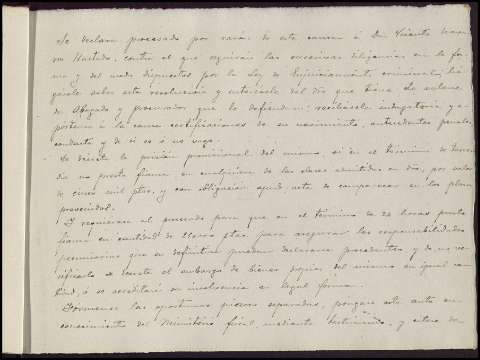 Se declara procesado por razón de esta causa á Don Vicente
Hurtado, contra el que seguirán las sucesivas diligencias en la for
ma y del modo dispuestos por la Ley de Enjuiciamiento criminal, há
gasele saber esta resolución y enterásele del dro que tiene de valerse
de Abogado y procurador que le defiendan; recíbasele indagatoria y a
pórtense á la causa certificaciones de su nacimiento, antecedentes penales
conducta y de si es ó no vago.
Se decreta la prisión provisional del mismo, si en el término de
dia no presta fianza en cualquiera de las clases admitidas en dro, por valor
de cinco mil ptas, y con obligación apud acta de comparecer en los plazos
prevenidos.
Y requiérase al procesado para que en el término de 24 horas preste
fianza en cantidad de ptas. para asegurar las responsabilidades
pecuniarias que en definitiva puedan declararse procedentes y de no ve
rificarlo se decreta el embargo de bienes propios del mismo en igual can
tidad, ó se acreditará su insolvencia en legal forma.
Fórmense las oportunas piezas separadas, póngase este auto en
conocimiento del Ministerio fiscal, mediante testimonio, y